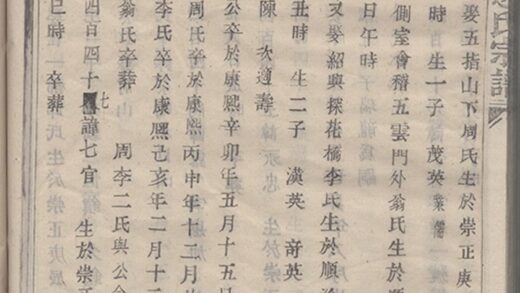 氏宗譜
娶五指山下周氏生於崇正庚
時 生一子 茂英業儒
側室會稽五雲門外翁氏生於順
日午時
又娶紹興探花橋李氏生於順治
丑時 生二子 漢英 竒英
陳 次適壽
公卒於康熙辛卯年五月十五日
周氏卒於康熙丙申年十二月
李氏卒於康熙己亥年二月十二
翁氏卒葬 周李二氏與公合
四百四十七 諱七官 生於崇正
巳時 卒葬